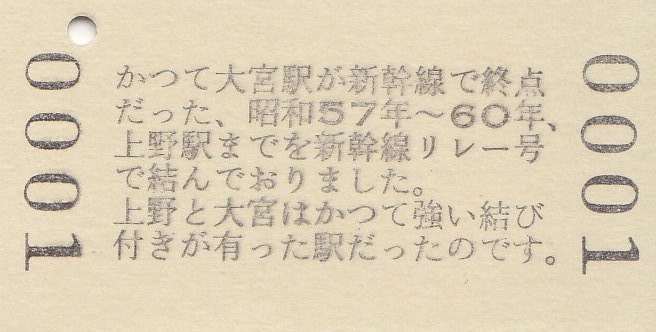 0001
かつて大宮駅が新幹線で終点
だった、昭和57年～60年、
上野駅までを新幹線リレー号
で結んでおりました。
上野と大宮はかつて強い結び
付きが有った駅だったのです。
0001